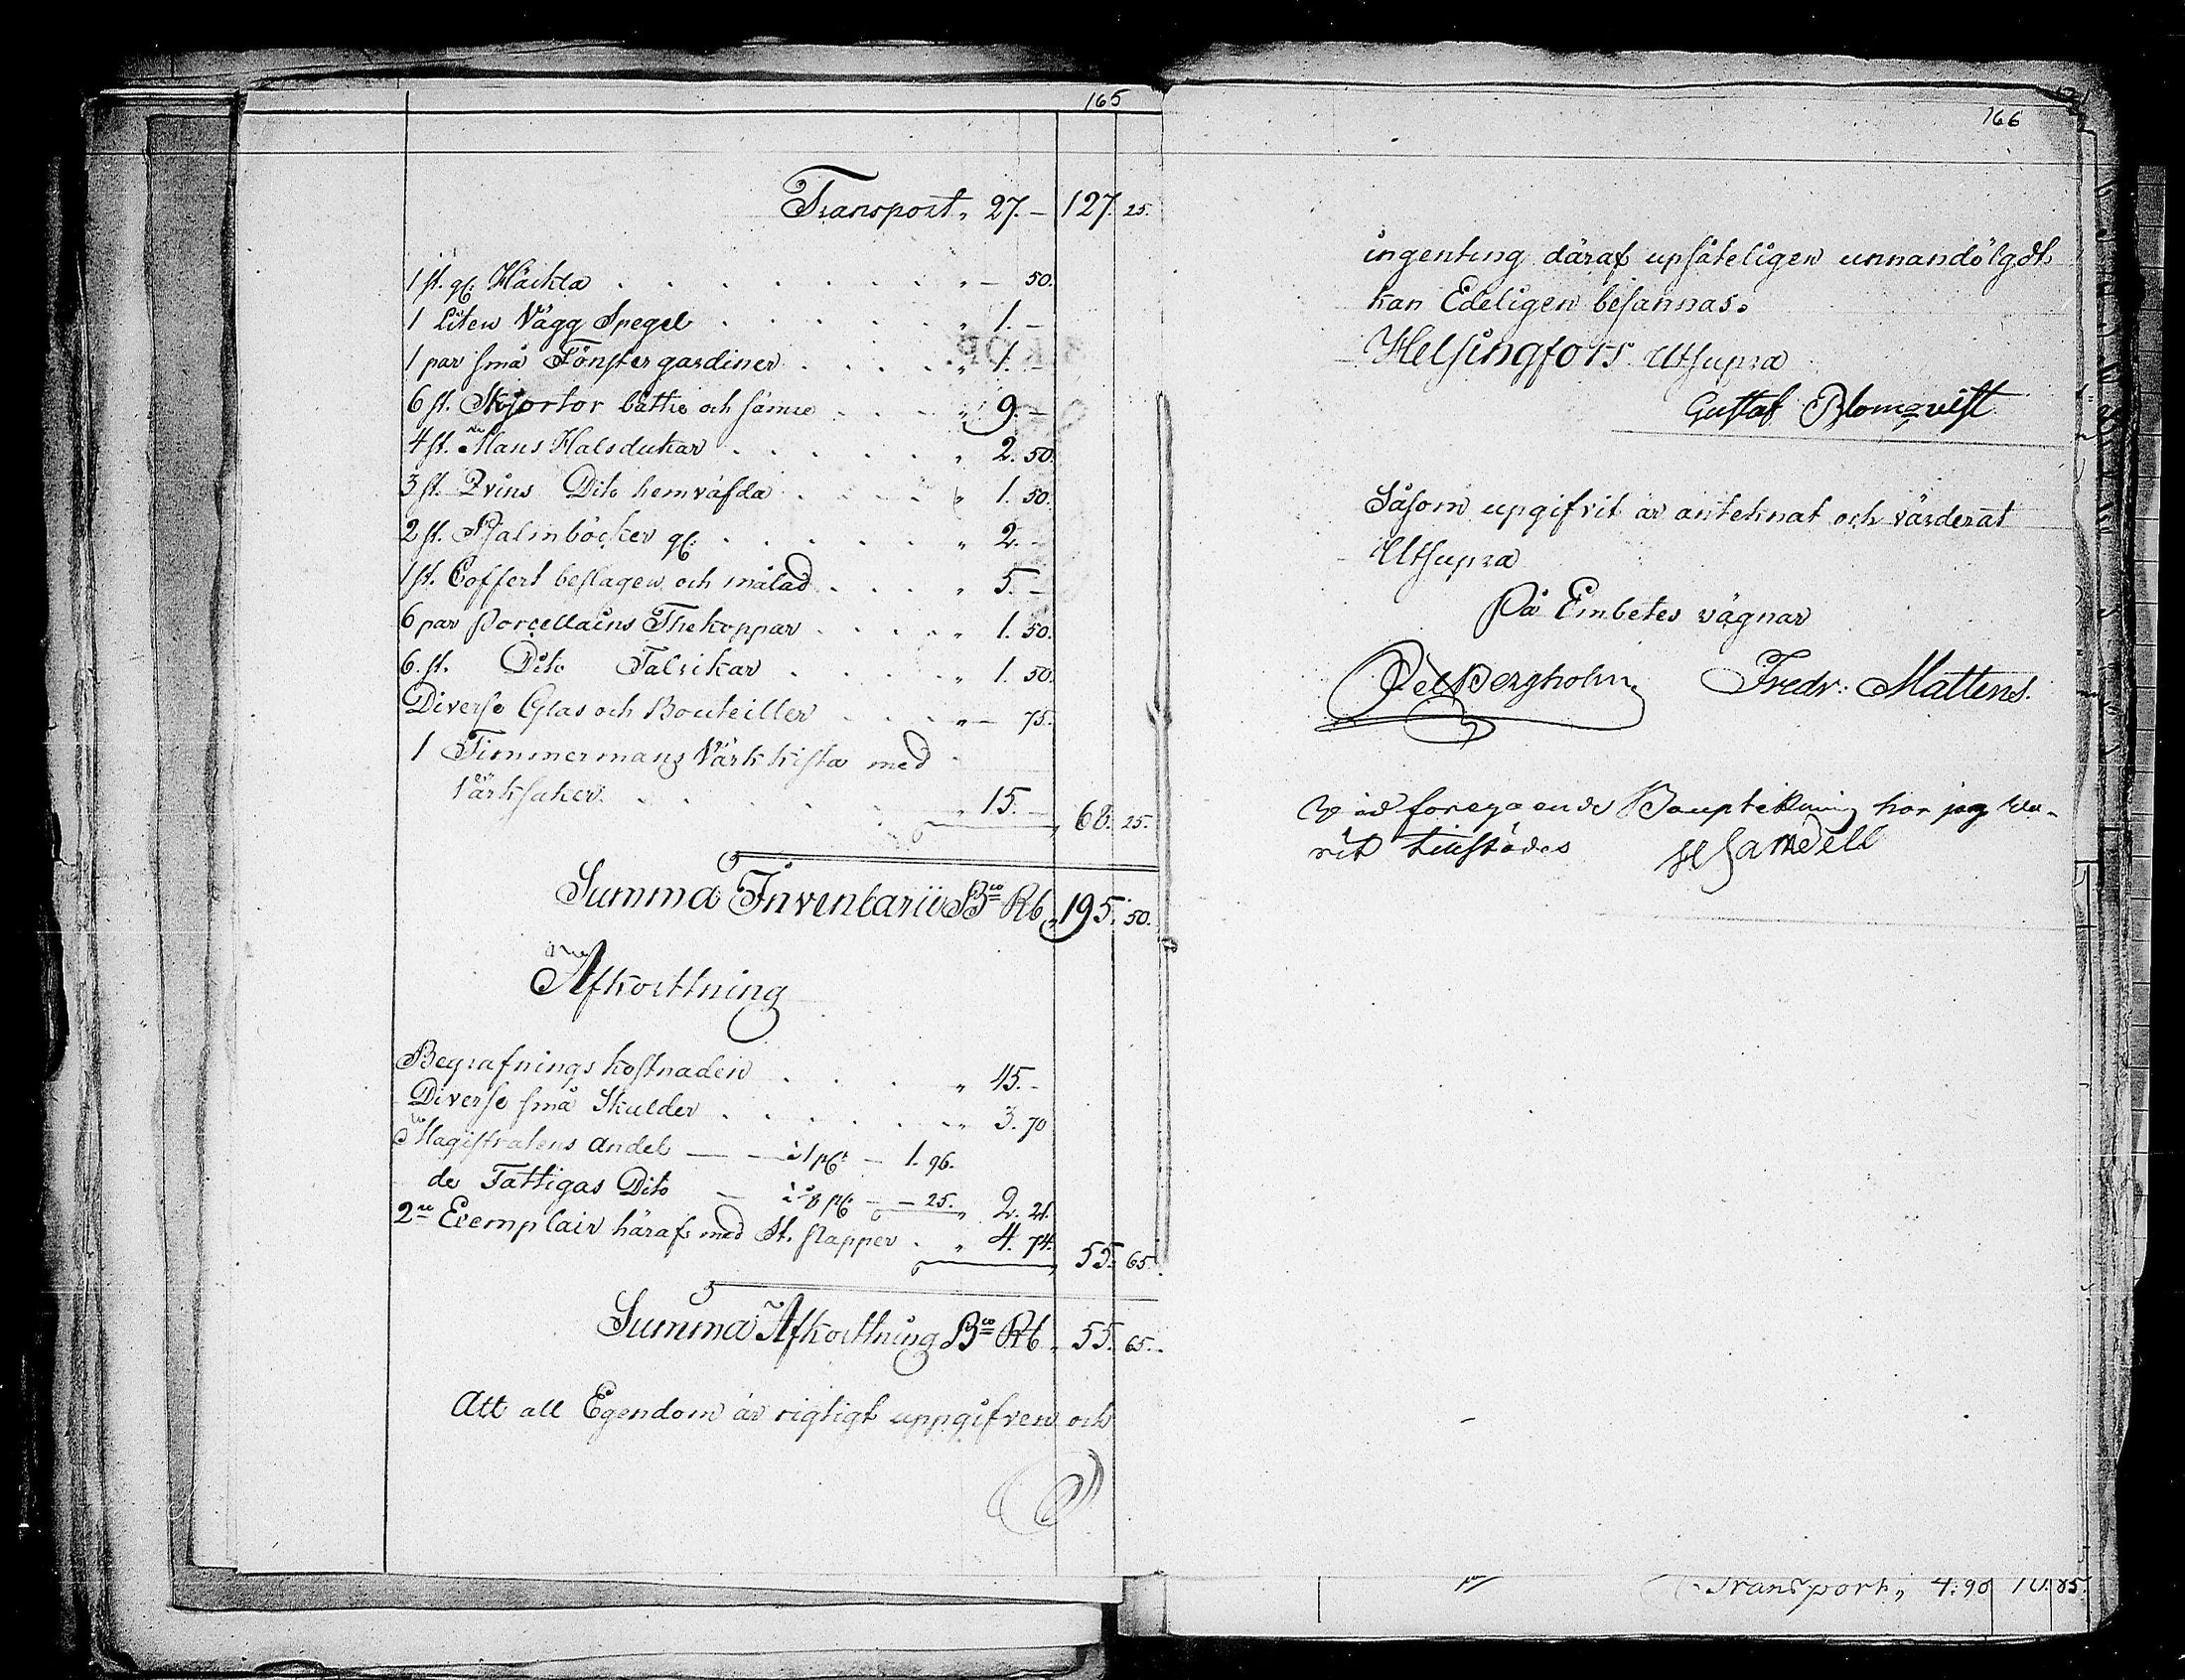 165
Transport „ 27. – 127. 25.
1 st. gl. Häckla . . . „ – 50.
1 Liten Vägg Spegel . . . „ 1. –
1 par små Fönster gardiner . . . „ 1. –
6 st. Skjortor bättre och sämre . . . „ 9. –
4 st. Mans Halsdukar . . . „ 2. 50.
3 st. Qvins Dito hemväfda . . . „ 1. 50.
2 st. Psalmböcker gl. . . . „ 2. –
1 st. Coffert beslagen och målad . . . „ 5. –
6 par Porcellains Thekoppar . . . „ 1. 50.
6. st. Dito Talrikar . . . „ 1. 50.
Diverse Glas och Bouteiller . . . „ – 75.
1 Timmermans Värk kista med
Värksaker . . . „ 15. – 68. 25.
Summa Inventarii Bco Rb „ 195. 50.
Afkortning
Begrafnings kostnaden . . . „ 45. –
Diverse små Skulder . . . „ 3. 70
Magistratens andel — — à 1 pCt – 1. 96.
de Fattigas Dito — à ⅛ pCt – – 25. „ 2. 21.
2ne Exemplair häraf med St. Papper . „ 4. 74. 55. 65.
Summa Afkortning Bco Rb „ 55. 65.
Att all Egendom är rigtigt uppgifven och
166
ingenting däraf upsåteligen unnandölgdt
kan Edeligen besannas.
Helsingfors Utsupra
Gustaf Blomqvist
Såsom upgifvit är anteknat och värderat
Utsupra
På Embetes vägnar
Bergholm Fredr: Mattens.
Vid foregaende Bouptekning har jag va-
rit tillstädes H Sandell
Transport, 4: 90